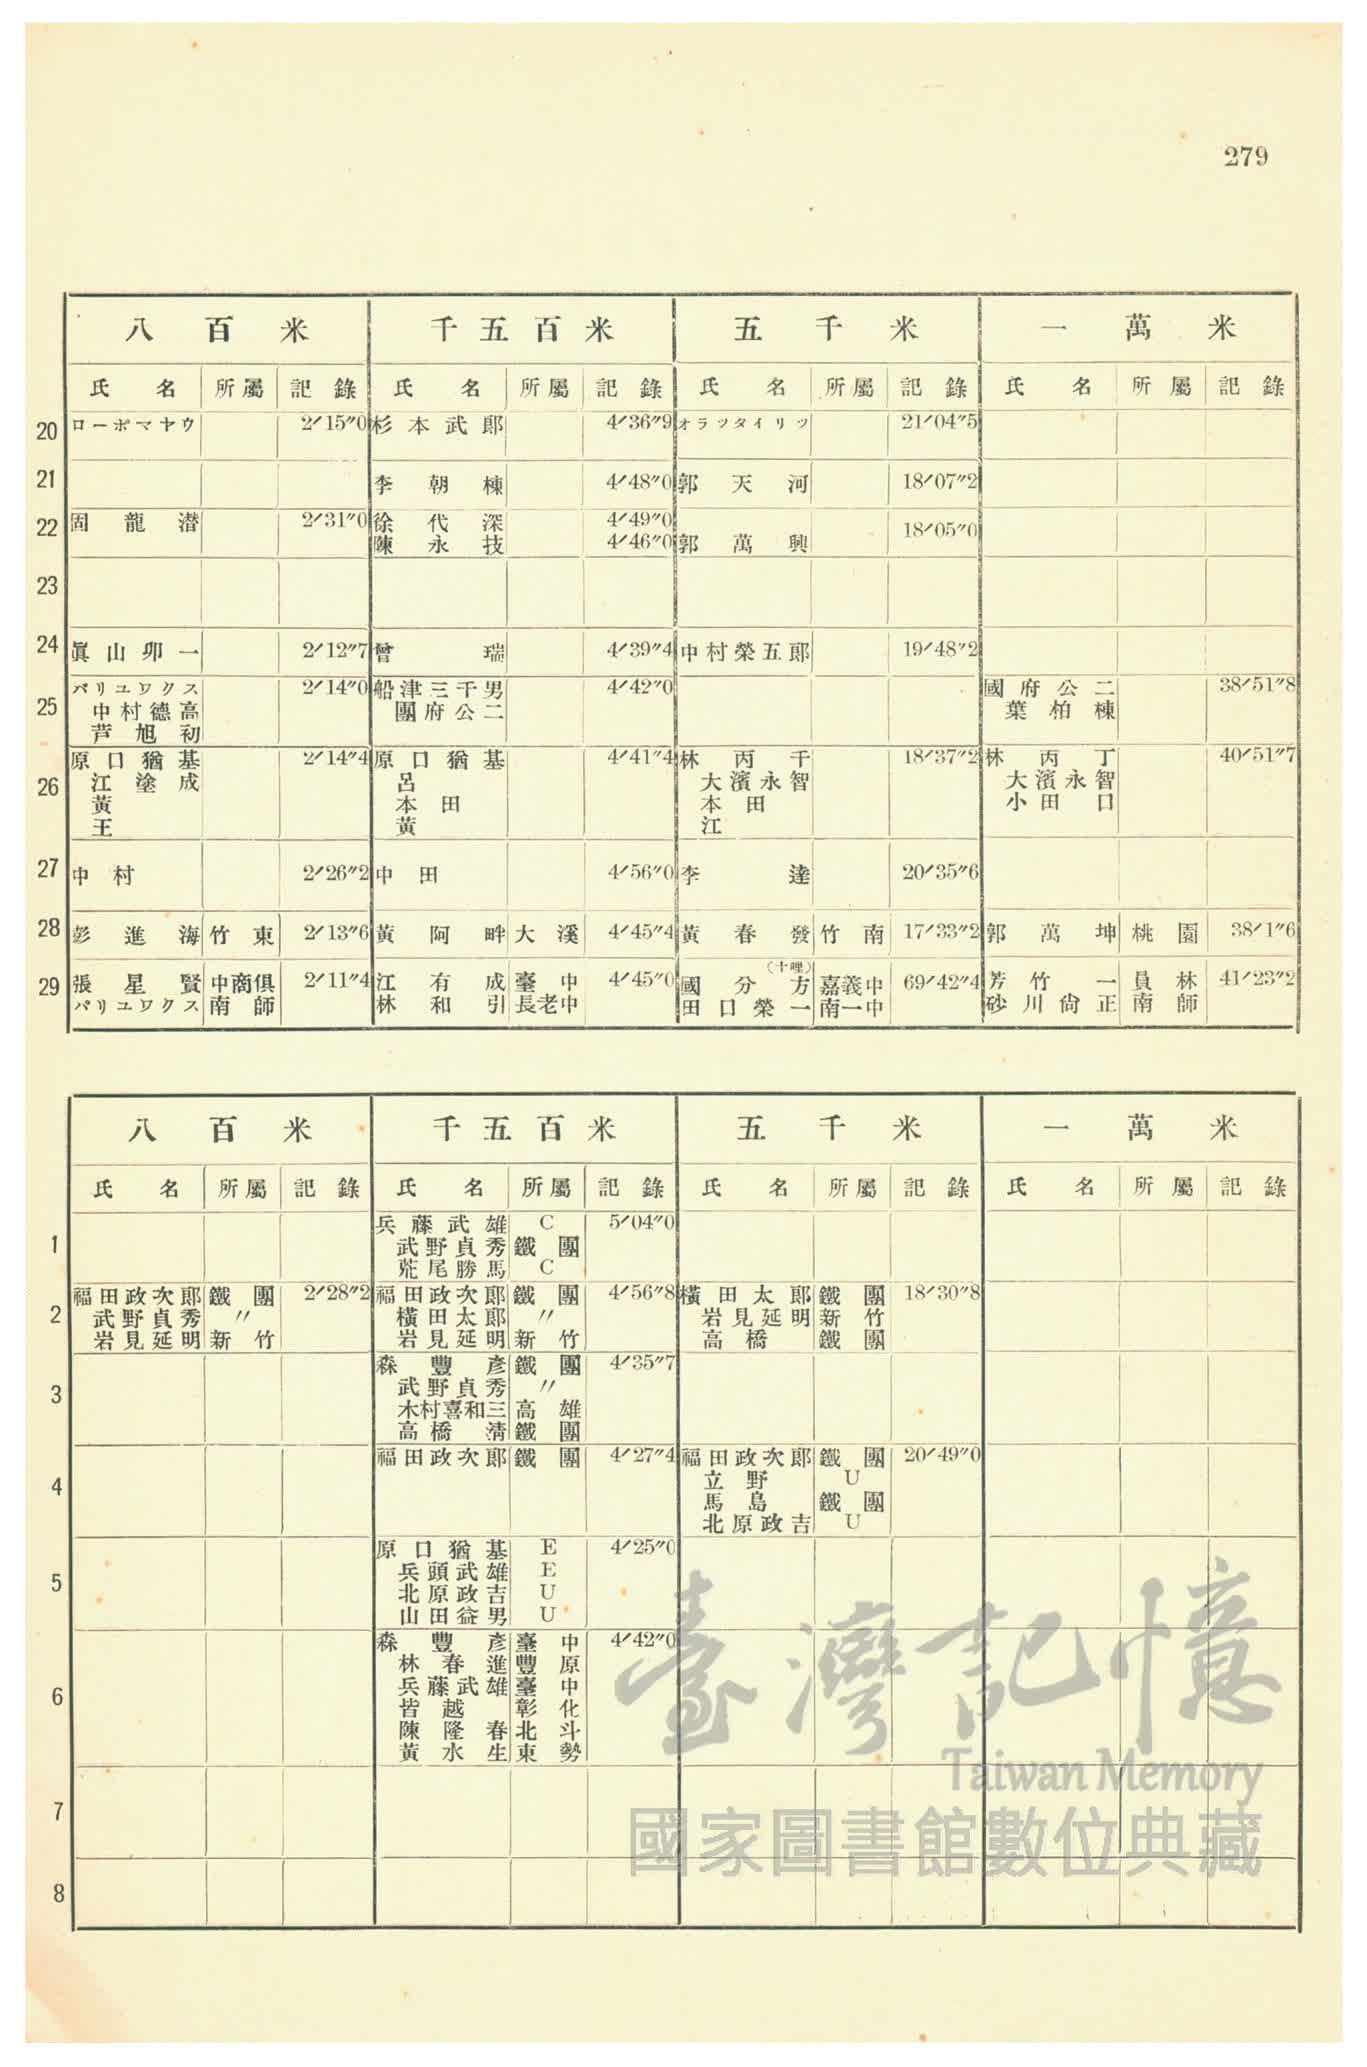 279
八百米 千五百米 五千米 一萬米
氏名 所屬 記錄 氏名 所屬 記錄 氏名 所屬 記錄 氏名 所屬 記錄
20 ローポマヤウ 2′15″0 杉本武郞 4′36″9 オラツタイリツ 21′04″5
21 李朝棟 4′48″0 郭天河 18′07″2
22 固龍潜 2′31″0 徐代深 4′49″0 18′05″0
陳永技 4′46″0 郭萬興
23
24 眞山卯一 2′12″7 曾瑞 4′39″4 中村榮五郞 19′48″2
25 パリユワクス 2′14″0 船津三千男 4′42″0 國府公二 38′51″8
中村德高 團府公二 葉柏棟
芦旭初
26 原口猶基 2′14″4 原口猶基 4′41″4 林丙千 18′37″2 林丙丁 40′51″7
江塗成 呂 大濱永智 大濱永智
黃 本田 本田 小田口
王 黃 江
27 中村 2′26″2 中田 4′56″0 李達 20′35″6
28 彭進海 竹東 2′13″6 黃阿畔 大溪 4′45″4 黃春發 竹南 17′33″2 郭萬坤 桃園 38′1″6
29 張星賢 中商俱 2′11″4 江有成 臺中 4′45″0 國分方(十哩) 嘉義中 69′42″4 芳竹一 員林 41′23″2
パリユワクス 南師 林和引 長老中 田口榮一 南一中 砂川尙正 南師
八百米 千五百米 五千米 一萬米
氏名 所屬 記錄 氏名 所屬 記錄 氏名 所屬 記錄 氏名 所屬 記錄
1 兵藤武雄 C 5′04″0
武野貞秀 鐵團
荒尾勝馬 C
2 福田政次郞 鐵團 2′28″2 福田政次郞 鐵團 4′56″8 橫田太郞 鐵團 18′30″8
武野貞秀 〃 橫田太郞 〃 岩見延明 新竹
岩見延明 新竹 岩見延明 新竹 高橋 鐵團
3 森豐彥 鐵團 4′35″7
武野貞秀 〃
木村喜和三 高雄
高橋淸 鐵團
4 福田政次郞 鐵團 4′27″4 福田政次郞 鐵團 20′49″0
立野 U
馬島 鐵團
北原政吉 U
5 原口猶基 E 4′25″0
兵頭武雄 E
北原政吉 U
山田益男 U
6 森豐彥 臺中 4′42″0
林春進 豐原
兵藤武雄 臺中
皆越 彰化
陳隆春 北斗
黃水生 東勢
7
8
臺灣記憶
Taiwan Memory
國家圖書館數位典藏